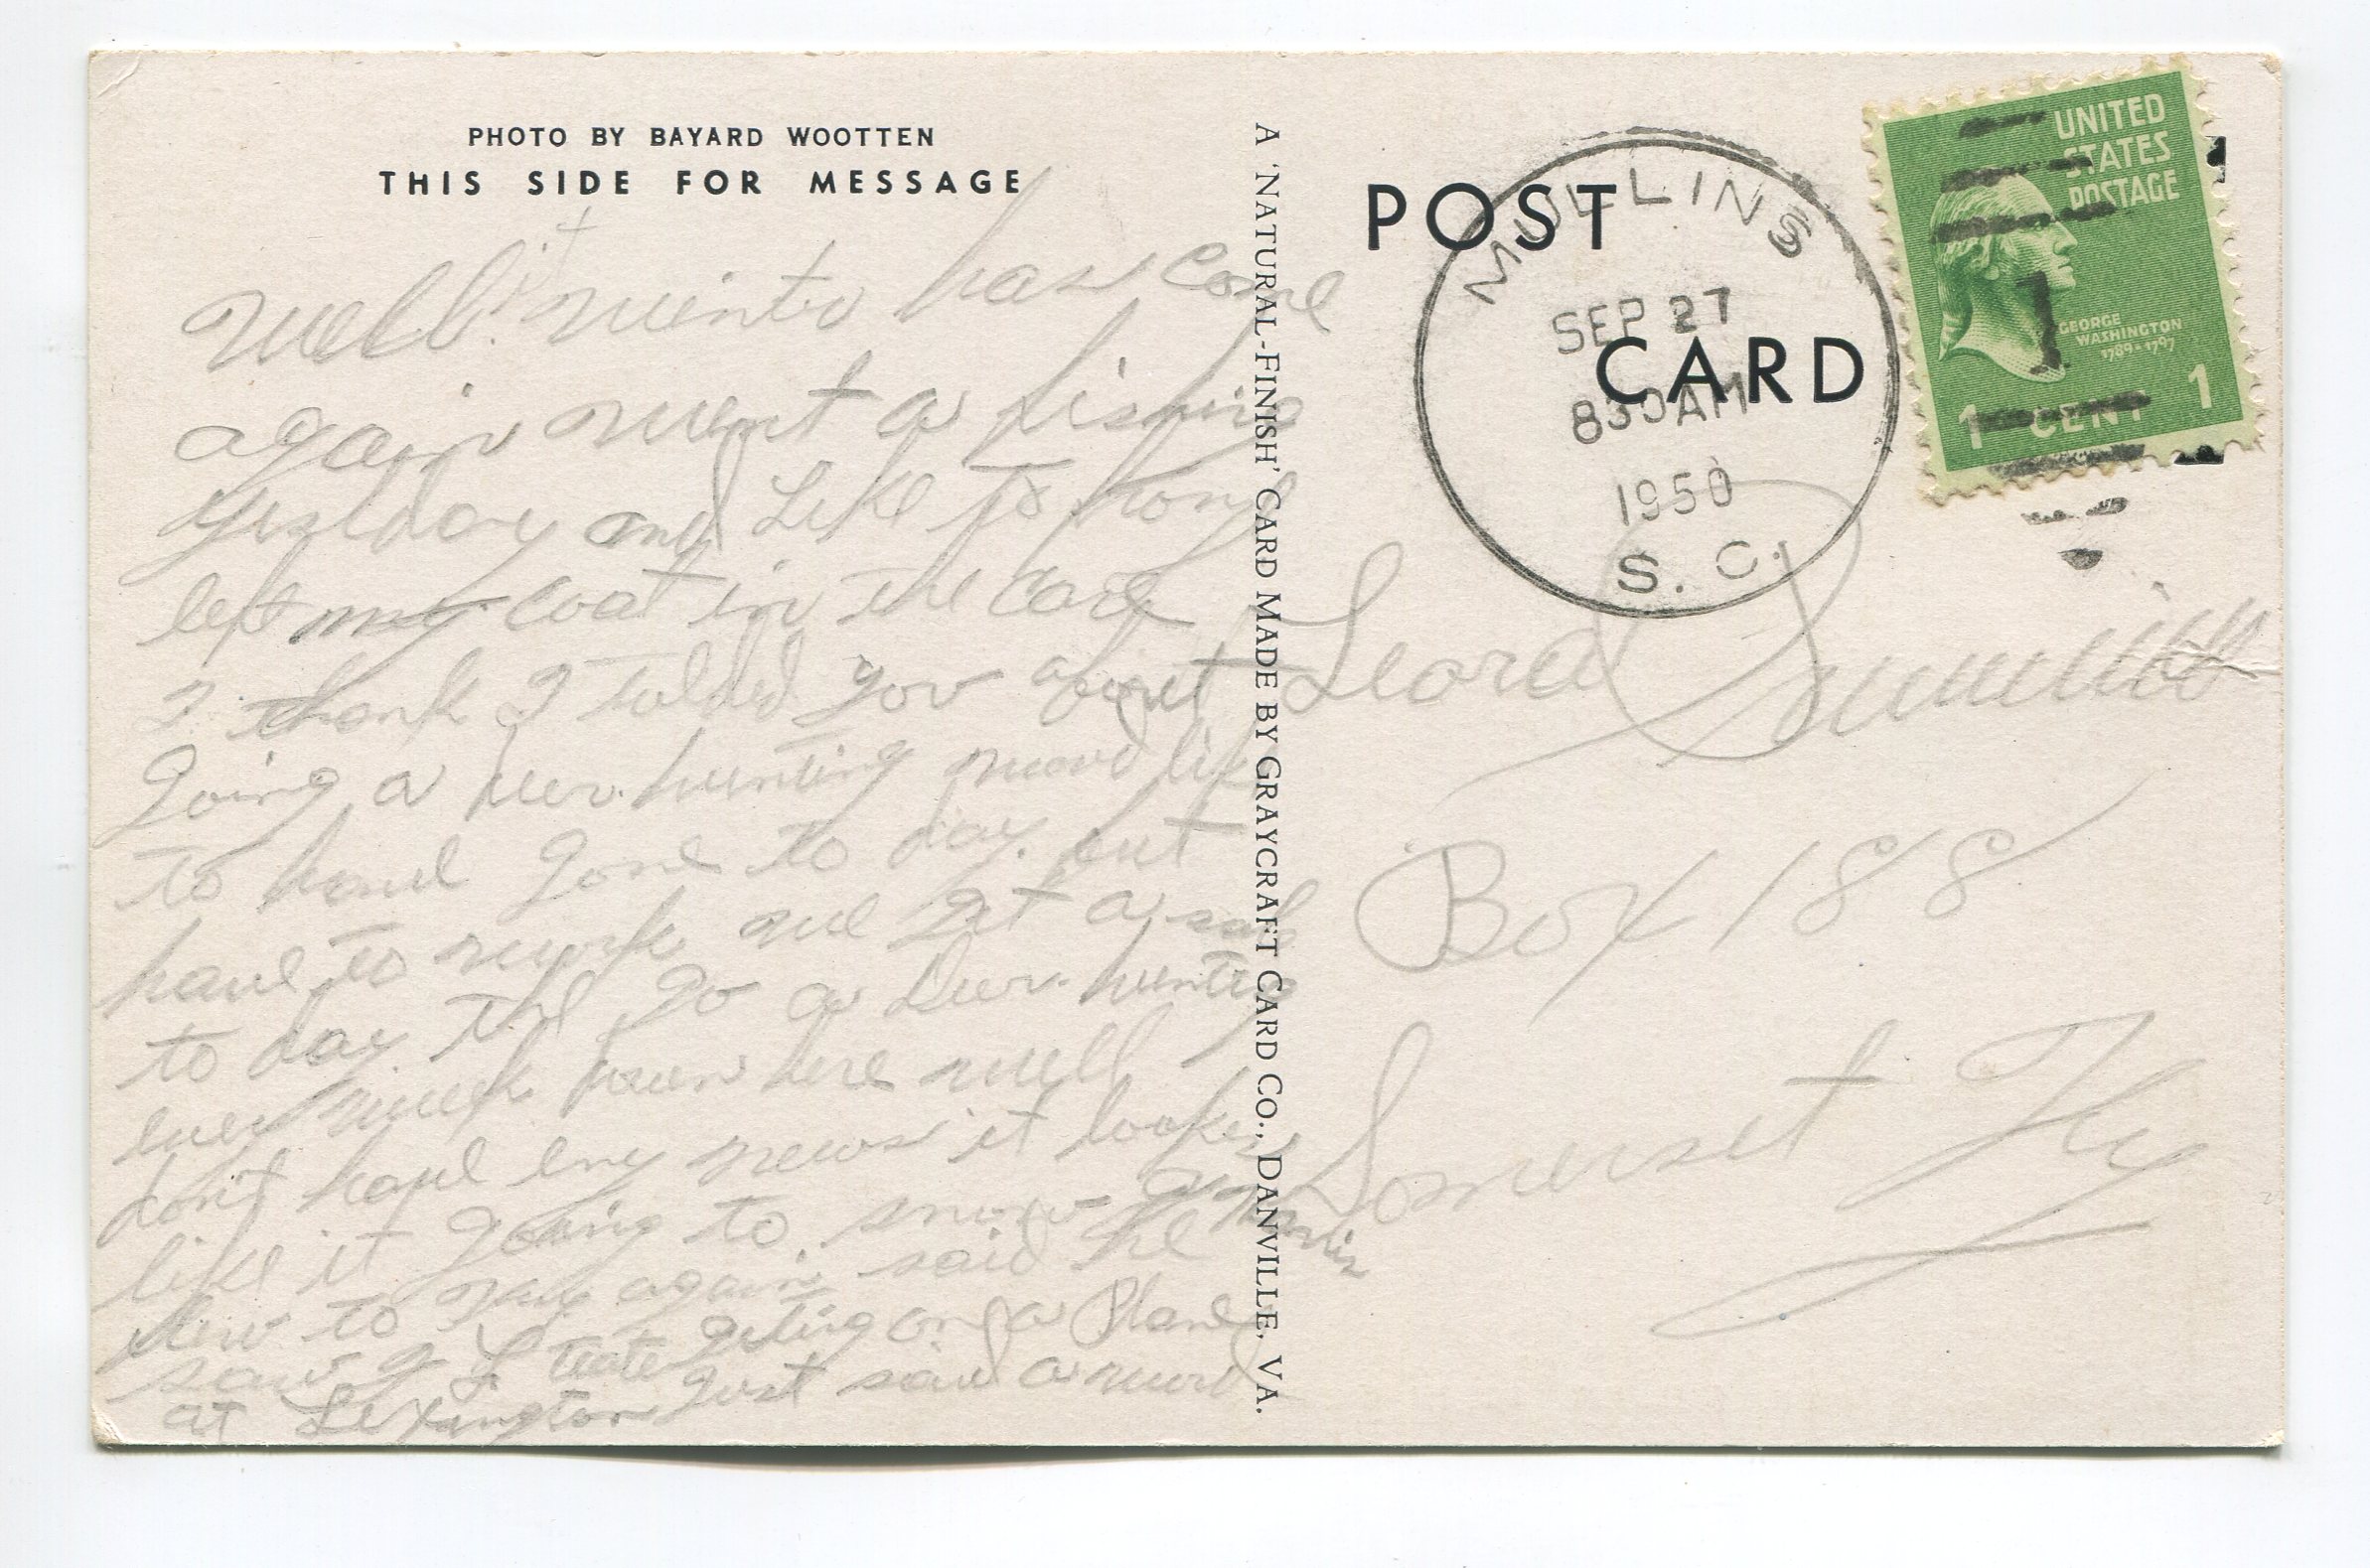 PHOTO BY BAYARD WOOTTEN
THIS SIDE FOR MESSAGE
Well it winter has come
again went a fishing
yesterday and Like to
left my coat in the care
I thank I tolded you about
going a Deer hunting
to have gone to day. but
have to work we get a
to day the go a Deer hunting
every week down here well
dont have eny news it looks
like it going to snow
to say again said he
saw getting on a Plane
at Lexington Just
A 'NATURAL-FINISH' CARD MADE BY GRAYCRAFT CARD CO., DANVILLE, VA.
POST
CARD
MULLINS
SEP 27
830AM
1950
S. C.
UNITED
STATES
POSTAGE
GEORGE
WASHINGTON
1789-1797
1 CENT 1
Leora
Box 188
Somerset Ky